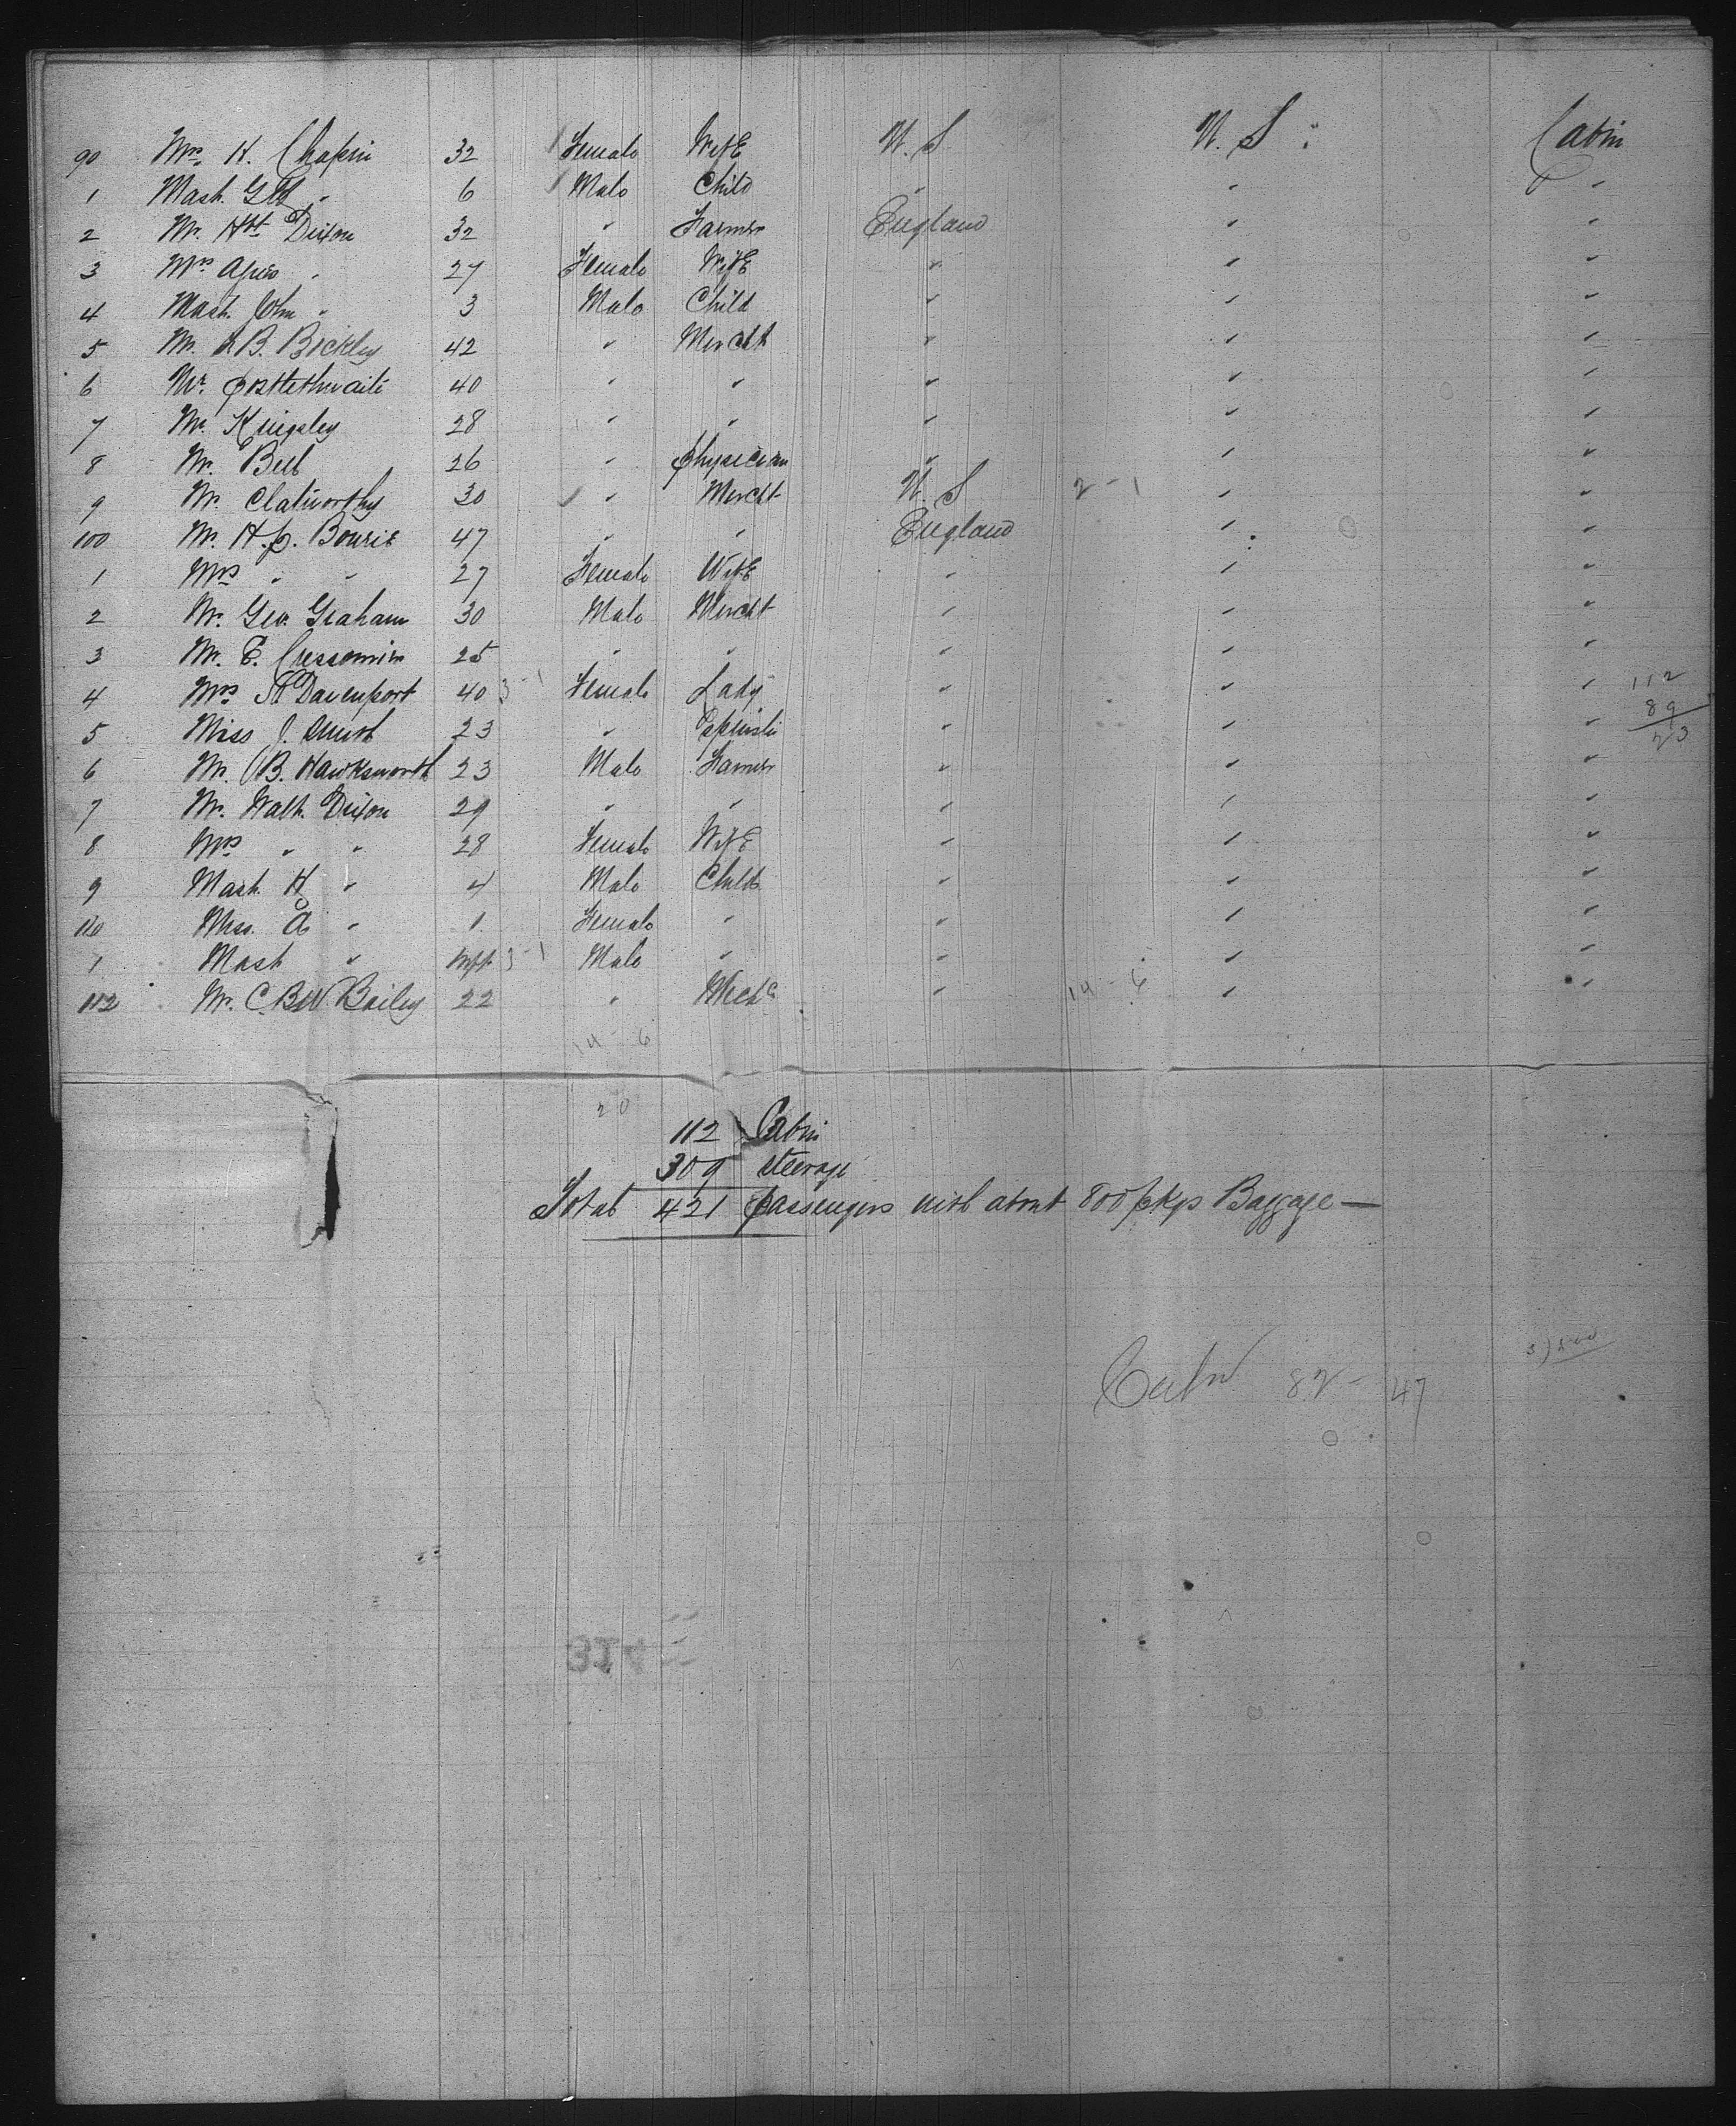 90 Mrs. H. Chapin 32 Female Wife U. S U. S. Cabin
1 Mast. GW " 6 Male Child " " "
2 Mr. Dixon 32 " Farmer England " "
3 Mrs " 27 Female Wife " " "
4 Mast. John " 3 Male Child " " "
5 Mr. B. Bickley 42 " Mercht " " "
6 Mr. Postlethwaite 40 " " " " "
7 Mr. Kingsley 28 " " " " "
8 Mr. Bell 26 " Physician " " "
9 Mr. Clatworthy 30 " Mercht U. S 2-1 " "
100 Mr. H.P. Bourie 47 " " England " "
1 Mrs " " 27 Female Wife " " "
2 Mr. Geo. Graham 30 Male Mercht " " "
3 Mr. E. 25 " " " " "
4 Mrs Davenport 40 3-1 Female Lady " " " 112
5 Miss J. 23 " Spinster " " " 89
6 Mr. B. Hawksworth 23 Male Farmer " " " 23
7 Mr. Walt. Dixon 29 " " " " "
8 Mrs " " 28 Female Wife " " "
9 Mast. H " 4 Male Child " " "
110 Miss. A " 1 Female " " " "
1 Mast " Inft. 3-1 Male " " " "
112 Mr. C.BW. Bailey 22 " Mechc " 14-6 " "
14-6
20
112 Cabin
309 Steerage
Total 421 passengers with about 800 pkgs Baggage —
3)500
Cabin 82- 47